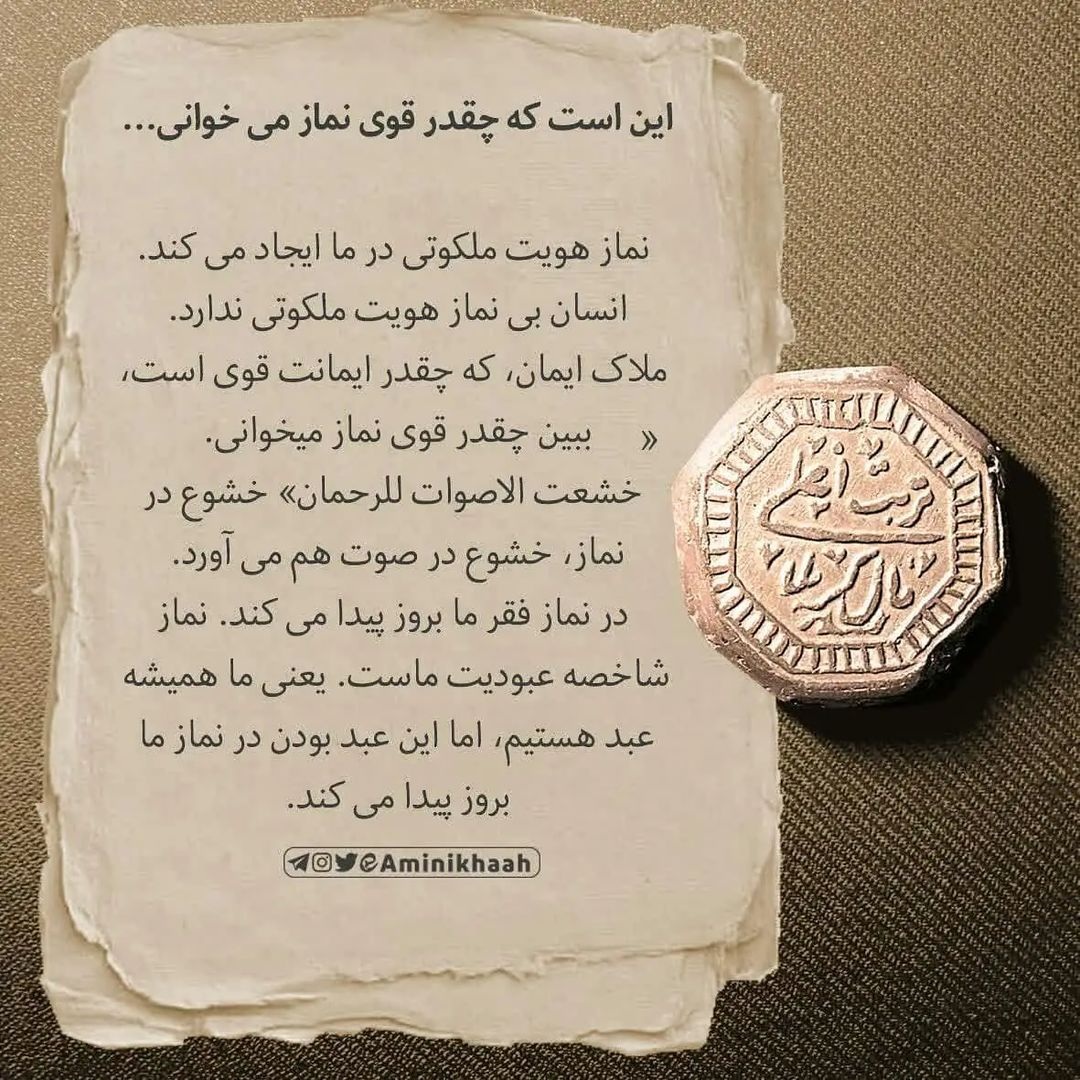 این است که چقدر قوی نماز می خوانی...
نماز هویت ملکوتی در ما ایجاد می کند.
انسان بی نماز هویت ملکوتی ندارد.
ملاک ایمان، که چقدر ایمانت قوی است،
« ببین چقدر قوی نماز میخوانی.
خشعت الاصوات للرحمان» خشوع در
نماز، خشوع در صوت هم می آورد.
در نماز فقر ما بروز پیدا می کند. نماز
شاخصه عبودیت ماست. یعنی ما همیشه
عبد هستیم، اما این عبد بودن در نماز ما
بروز پیدا می کند.
@Aminikhaah
تربت اعلی
کربلا